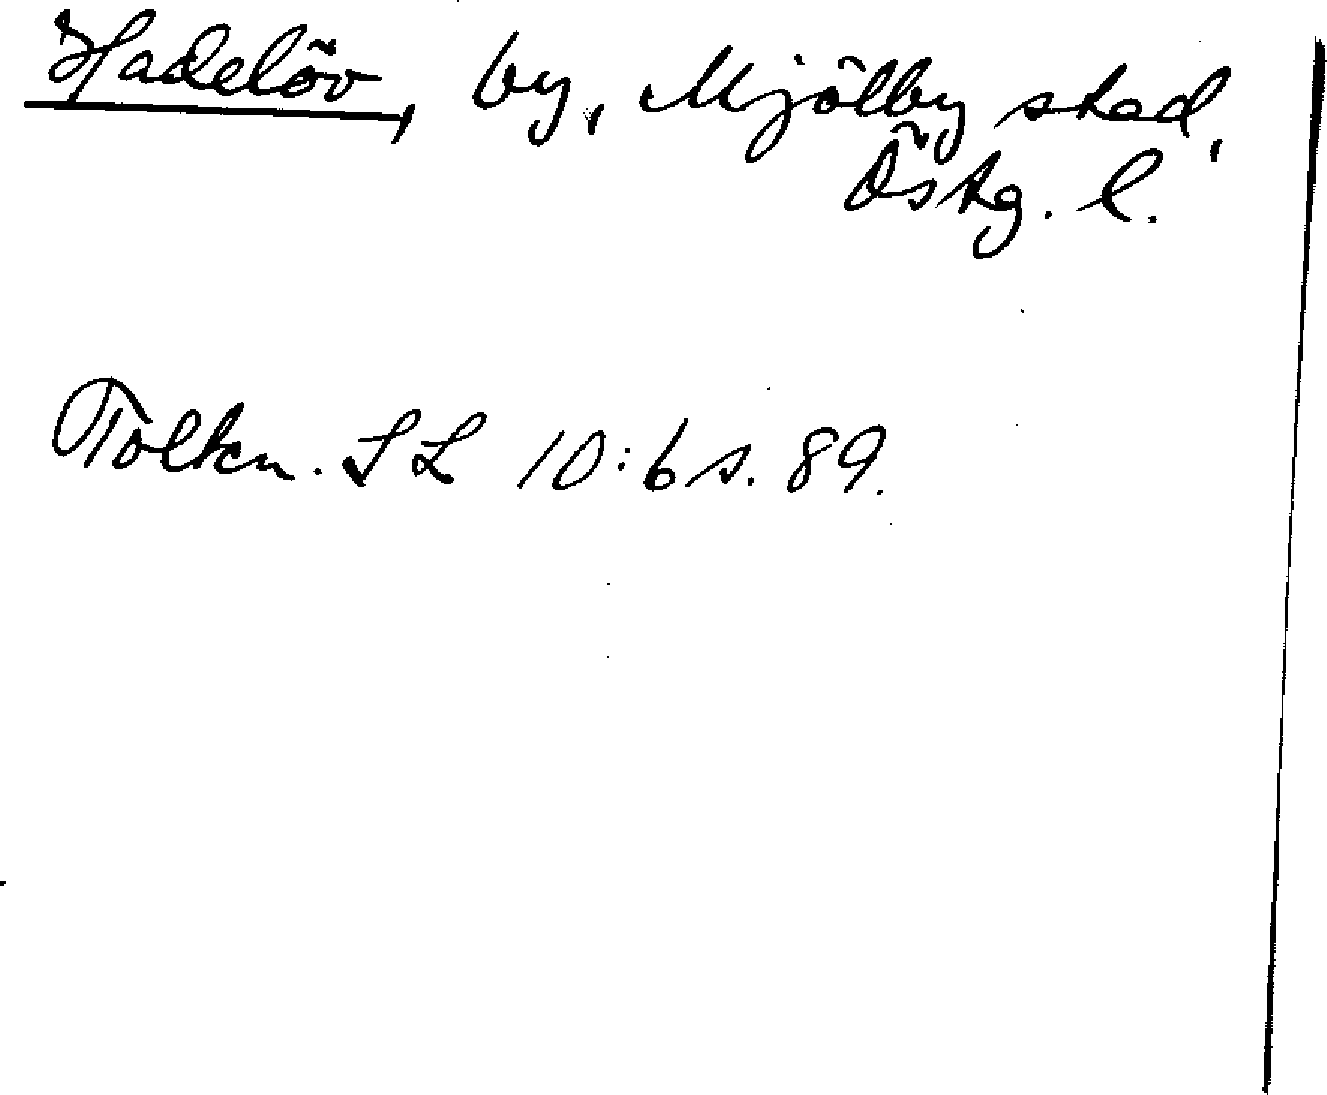 Hadelöv, by, Mjölby stad,
Östg. l.
Tolkn. SL 10:6 s. 89.